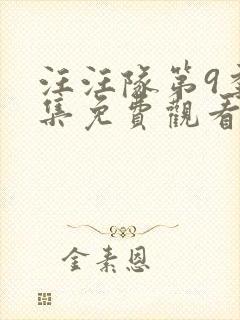 汪汪隊第9
集免費觀看
金素恩